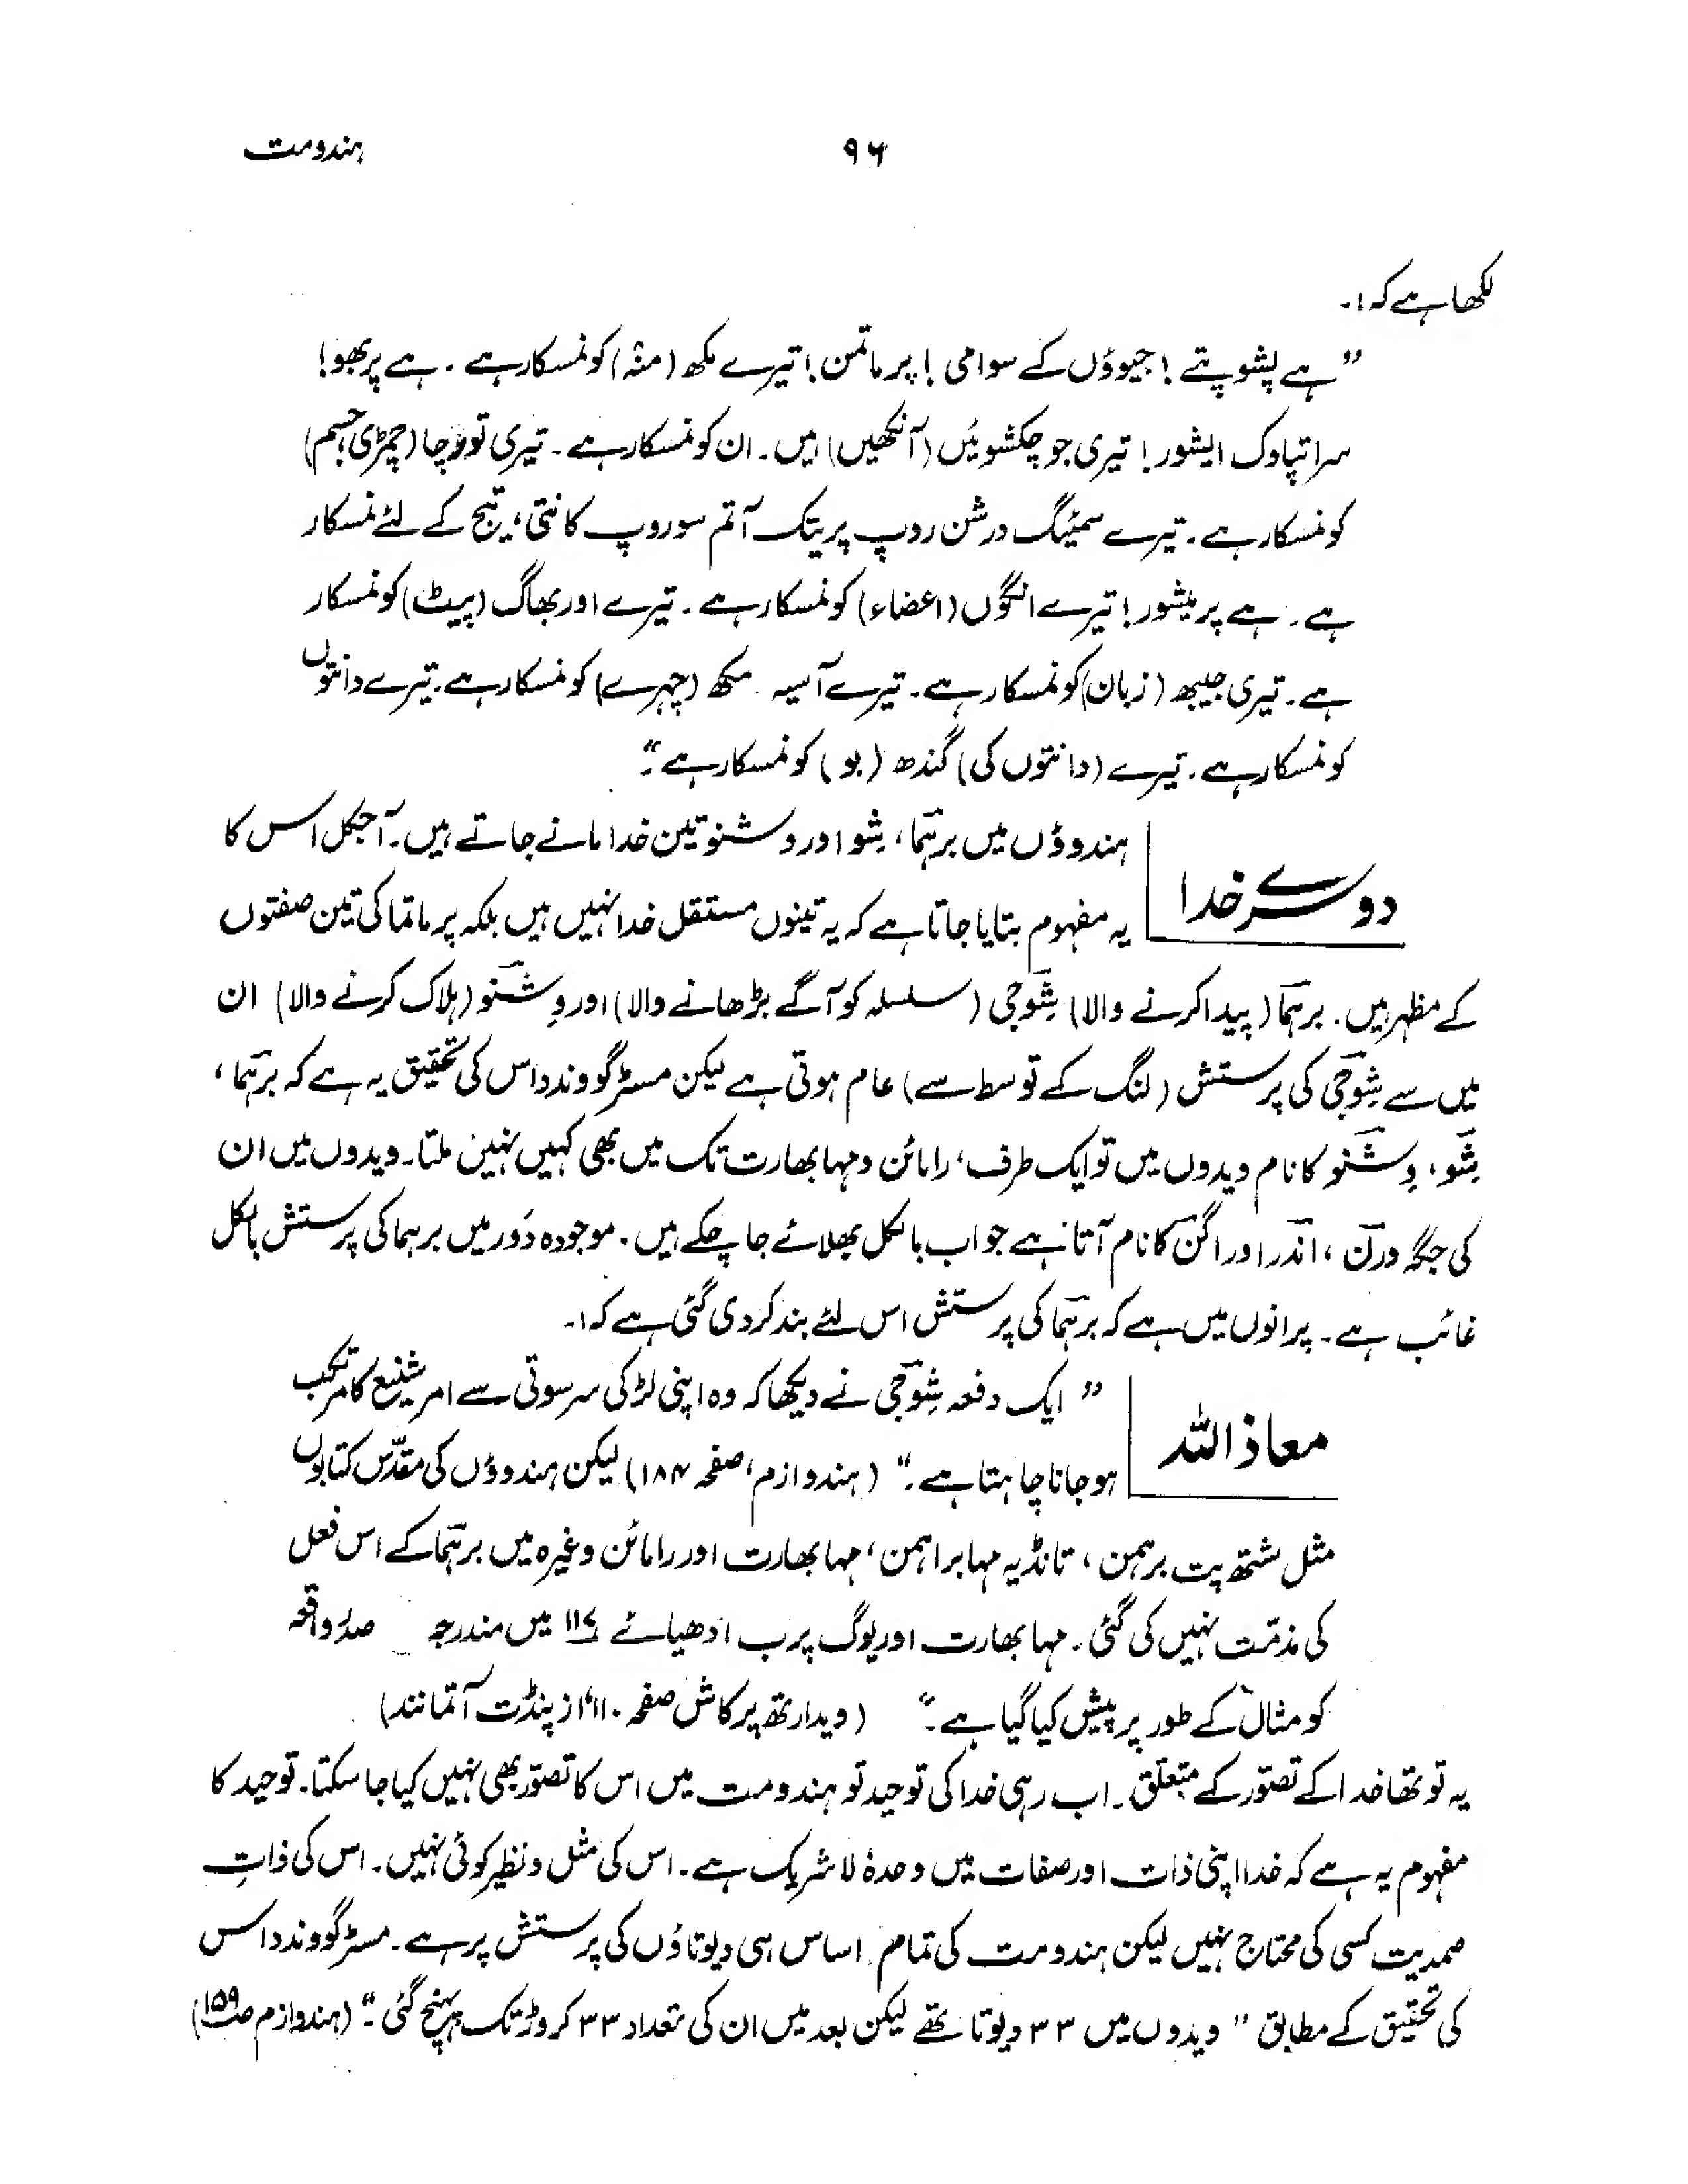 ہندومت
۹۶
لکھا ہے کہ :۔
”ہے پشوپتے! جیوؤں کے سوامی! پرماتمن! تیرے مکھ (منہ) کو نمسکار ہے۔ ہے پربھو!
سراتپاوک ایشور! تیری جو چکشوئیں (آنکھیں) ہیں۔ ان کو نمسکار ہے۔ تیری تو وچا (چمڑی، جسم)
کو نمسکار ہے۔ تیرے سمیگ درشن روپ پریتک آتم سوروپ کانتی، تیج کے لئے نمسکار
ہے۔ ہے پرمیشور! تیرے انگوں (اعضاء) کو نمسکار ہے۔ تیرے اور بھاگ (پیٹ) کو نمسکار
ہے۔ تیری جیبھ (زبان) کو نمسکار ہے۔ تیرے آسیہ مکھ (چہرے) کو نمسکار ہے۔ تیرے دانتوں
کو نمسکار ہے۔ تیرے (دانتوں کی) گندھ (بو) کو نمسکار ہے۔“
دوسرے خدا
ہندوؤں میں برہما، شو اور وشنو تین خدا مانے جاتے ہیں۔ آجکل اس کا
یہ مفہوم بتایا جاتا ہے کہ یہ تینوں مستقل خدا نہیں ہیں بلکہ پرماتما کی تین صفتوں
کے مظہر ہیں۔ برہما (پیدا کرنے والا) شوجی (سلسلہ کو آگے بڑھانے والا) اور وشنو (ہلاک کرنے والا) ان
میں سے شوجی کی پرستش (لنگ کے توسط سے) عام ہوتی ہے لیکن مسٹر گووند داس کی تحقیق یہ ہے کہ برہما،
شو، وشنو کا نام ویدوں میں تو ایک طرف، رامائن و مہابھارت تک میں بھی کہیں نہیں ملتا۔ ویدوں میں ان
کی جگہ ورن، اندر اور اگن کا نام آتا ہے جو اب بالکل بھلائے جا چکے ہیں۔ موجودہ دَور میں برہما کی پرستش بالکل
غائب ہے۔ پرانوں میں ہے کہ برہما کی پرستش اس لئے بند کر دی گئی ہے کہ :۔
معاذ اللہ
”ایک دفعہ شوجی نے دیکھا کہ وہ اپنی لڑکی سرسوتی سے امر شنیع کا مرتکب
ہو جانا چاہتا ہے۔“ (ہندوازم، صفحہ ۱۸۴) لیکن ہندوؤں کی مقدّس کتابوں
مثل شتھ پت برہمن، تانڈیہ مہا براہمن، مہابھارت اور رامائن وغیرہ میں برہما کے اس فعل
کی مذمّت نہیں کی گئی۔ مہا بھارت اور یوگ پرب ادھیائے ۱۱۷ میں مندرجہ صدر واقعہ
کو مثال کے طور پر پیش کیا گیا ہے۔“ (ویدارتھ پرکاش صفحہ ۱۱۰، از پنڈت آتمانند)
یہ تو تھا خدا کے تصوّر کے متعلق۔ اب رہی خدا کی توحید تو ہندومت میں اس کا تصوّر بھی نہیں کیا جا سکتا۔ توحید کا
مفہوم یہ ہے کہ خدا اپنی ذات اور صفات میں وحدہٗ لا شریک ہے۔ اس کی مثل و نظیر کوئی نہیں۔ اس کی ذاتِ
صمدیت کسی کی محتاج نہیں لیکن ہندومت کی تمام اساس ہی دیوتاؤں کی پرستش پر ہے۔ مسٹر گووند داس
کی تحقیق کے مطابق ”ویدوں میں ۳۳ دیوتا تھے لیکن بعد میں ان کی تعداد ۳۳ کروڑ تک پہنچ گئی۔“ (ہندوازم ص۱۵۹)